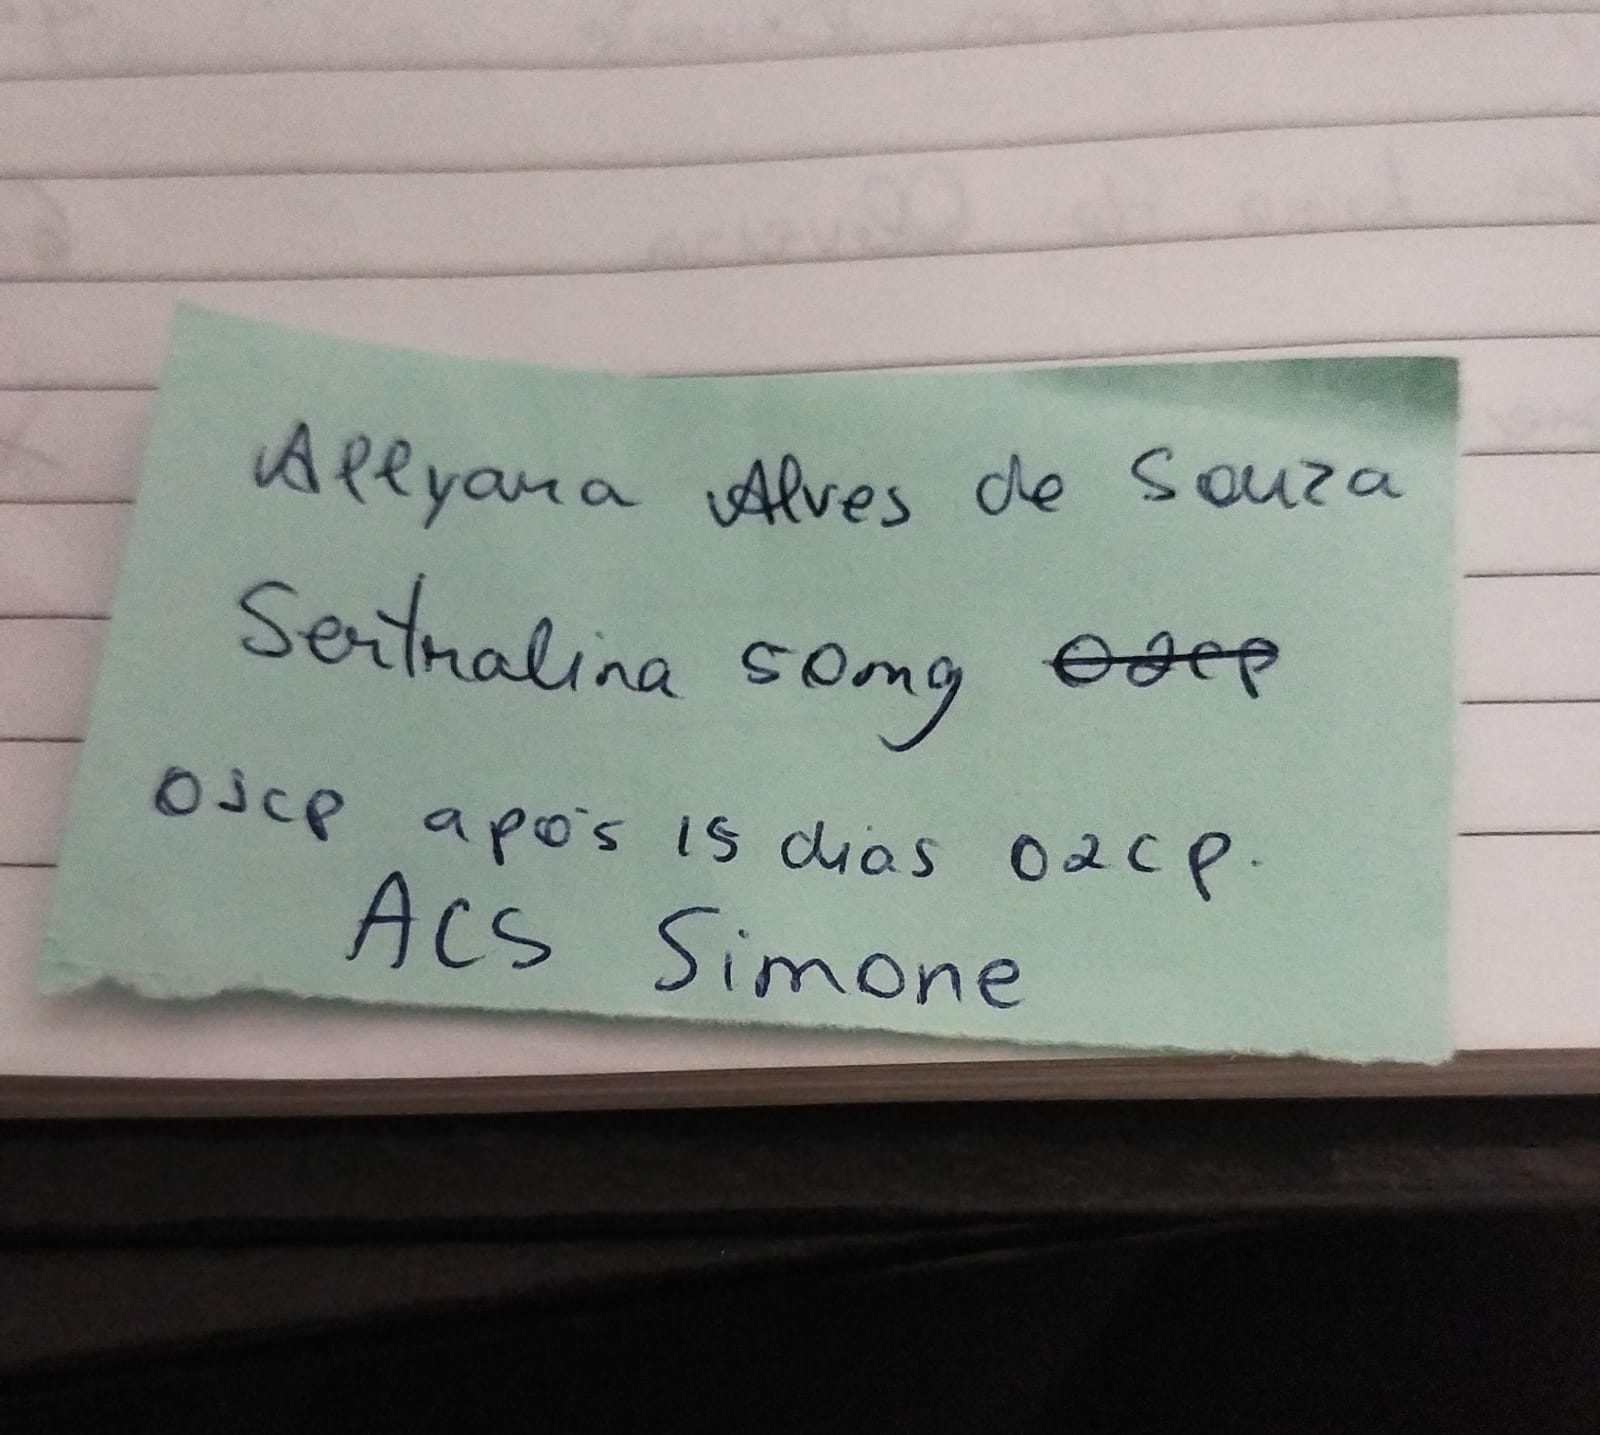 Allyana Alves de Souza
Sertralina 50mg
01cp após 15 dias 02cp.
ACS Simone